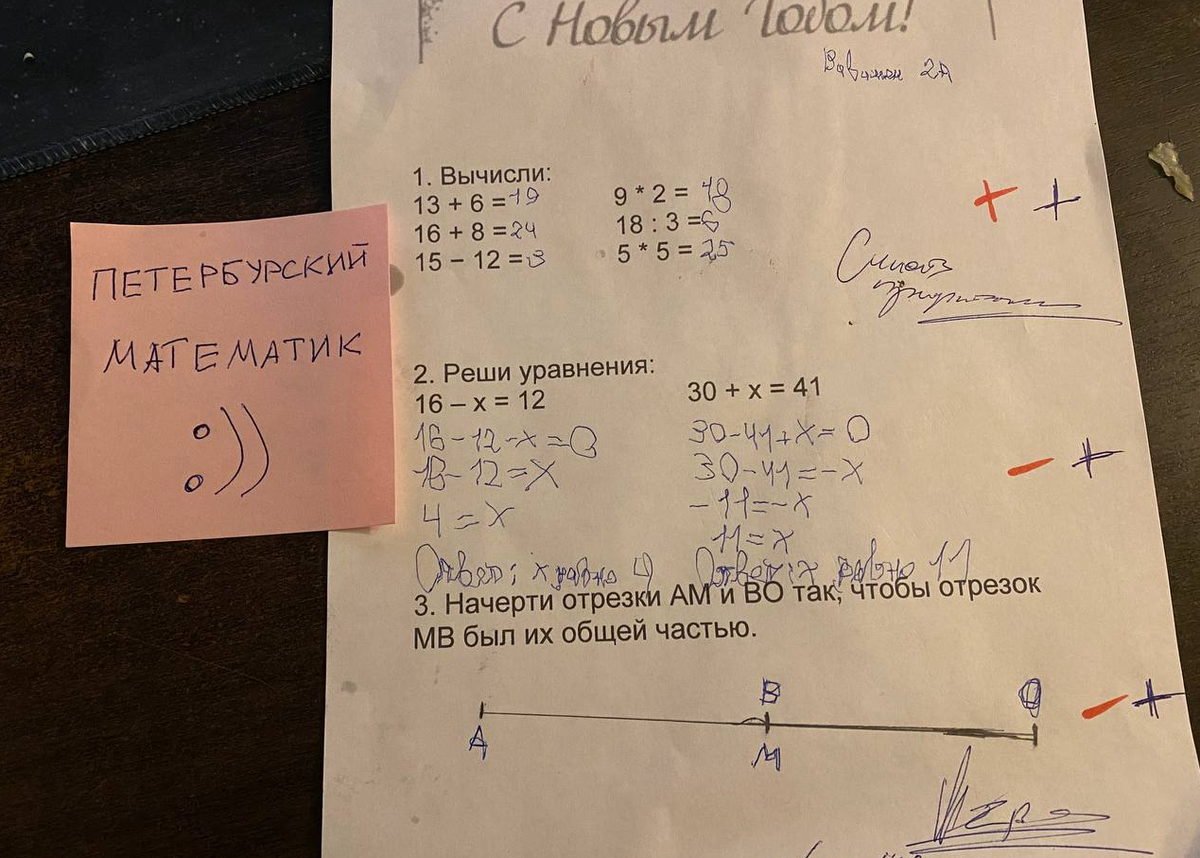 С Новым Годом!
2А
ПЕТЕРБУРСКИЙ
МАТЕМАТИК
:))
1. Вычисли:
13 + 6 = 19 9 * 2 = 18
16 + 8 = 24 18 : 3 = 6
15 – 12 = 3 5 * 5 = 25
+ +
2. Реши уравнения:
16 – x = 12 30 + x = 41
16-12-x=0 30-41+x=0
16-12=x 30-41=-x
4=x -11=-x
11=x
Ответ: x равно 4 Ответ: x равно 11
- +
3. Начерти отрезки АМ и ВО так, чтобы отрезок
МВ был их общей частью.
В О
А М
- +